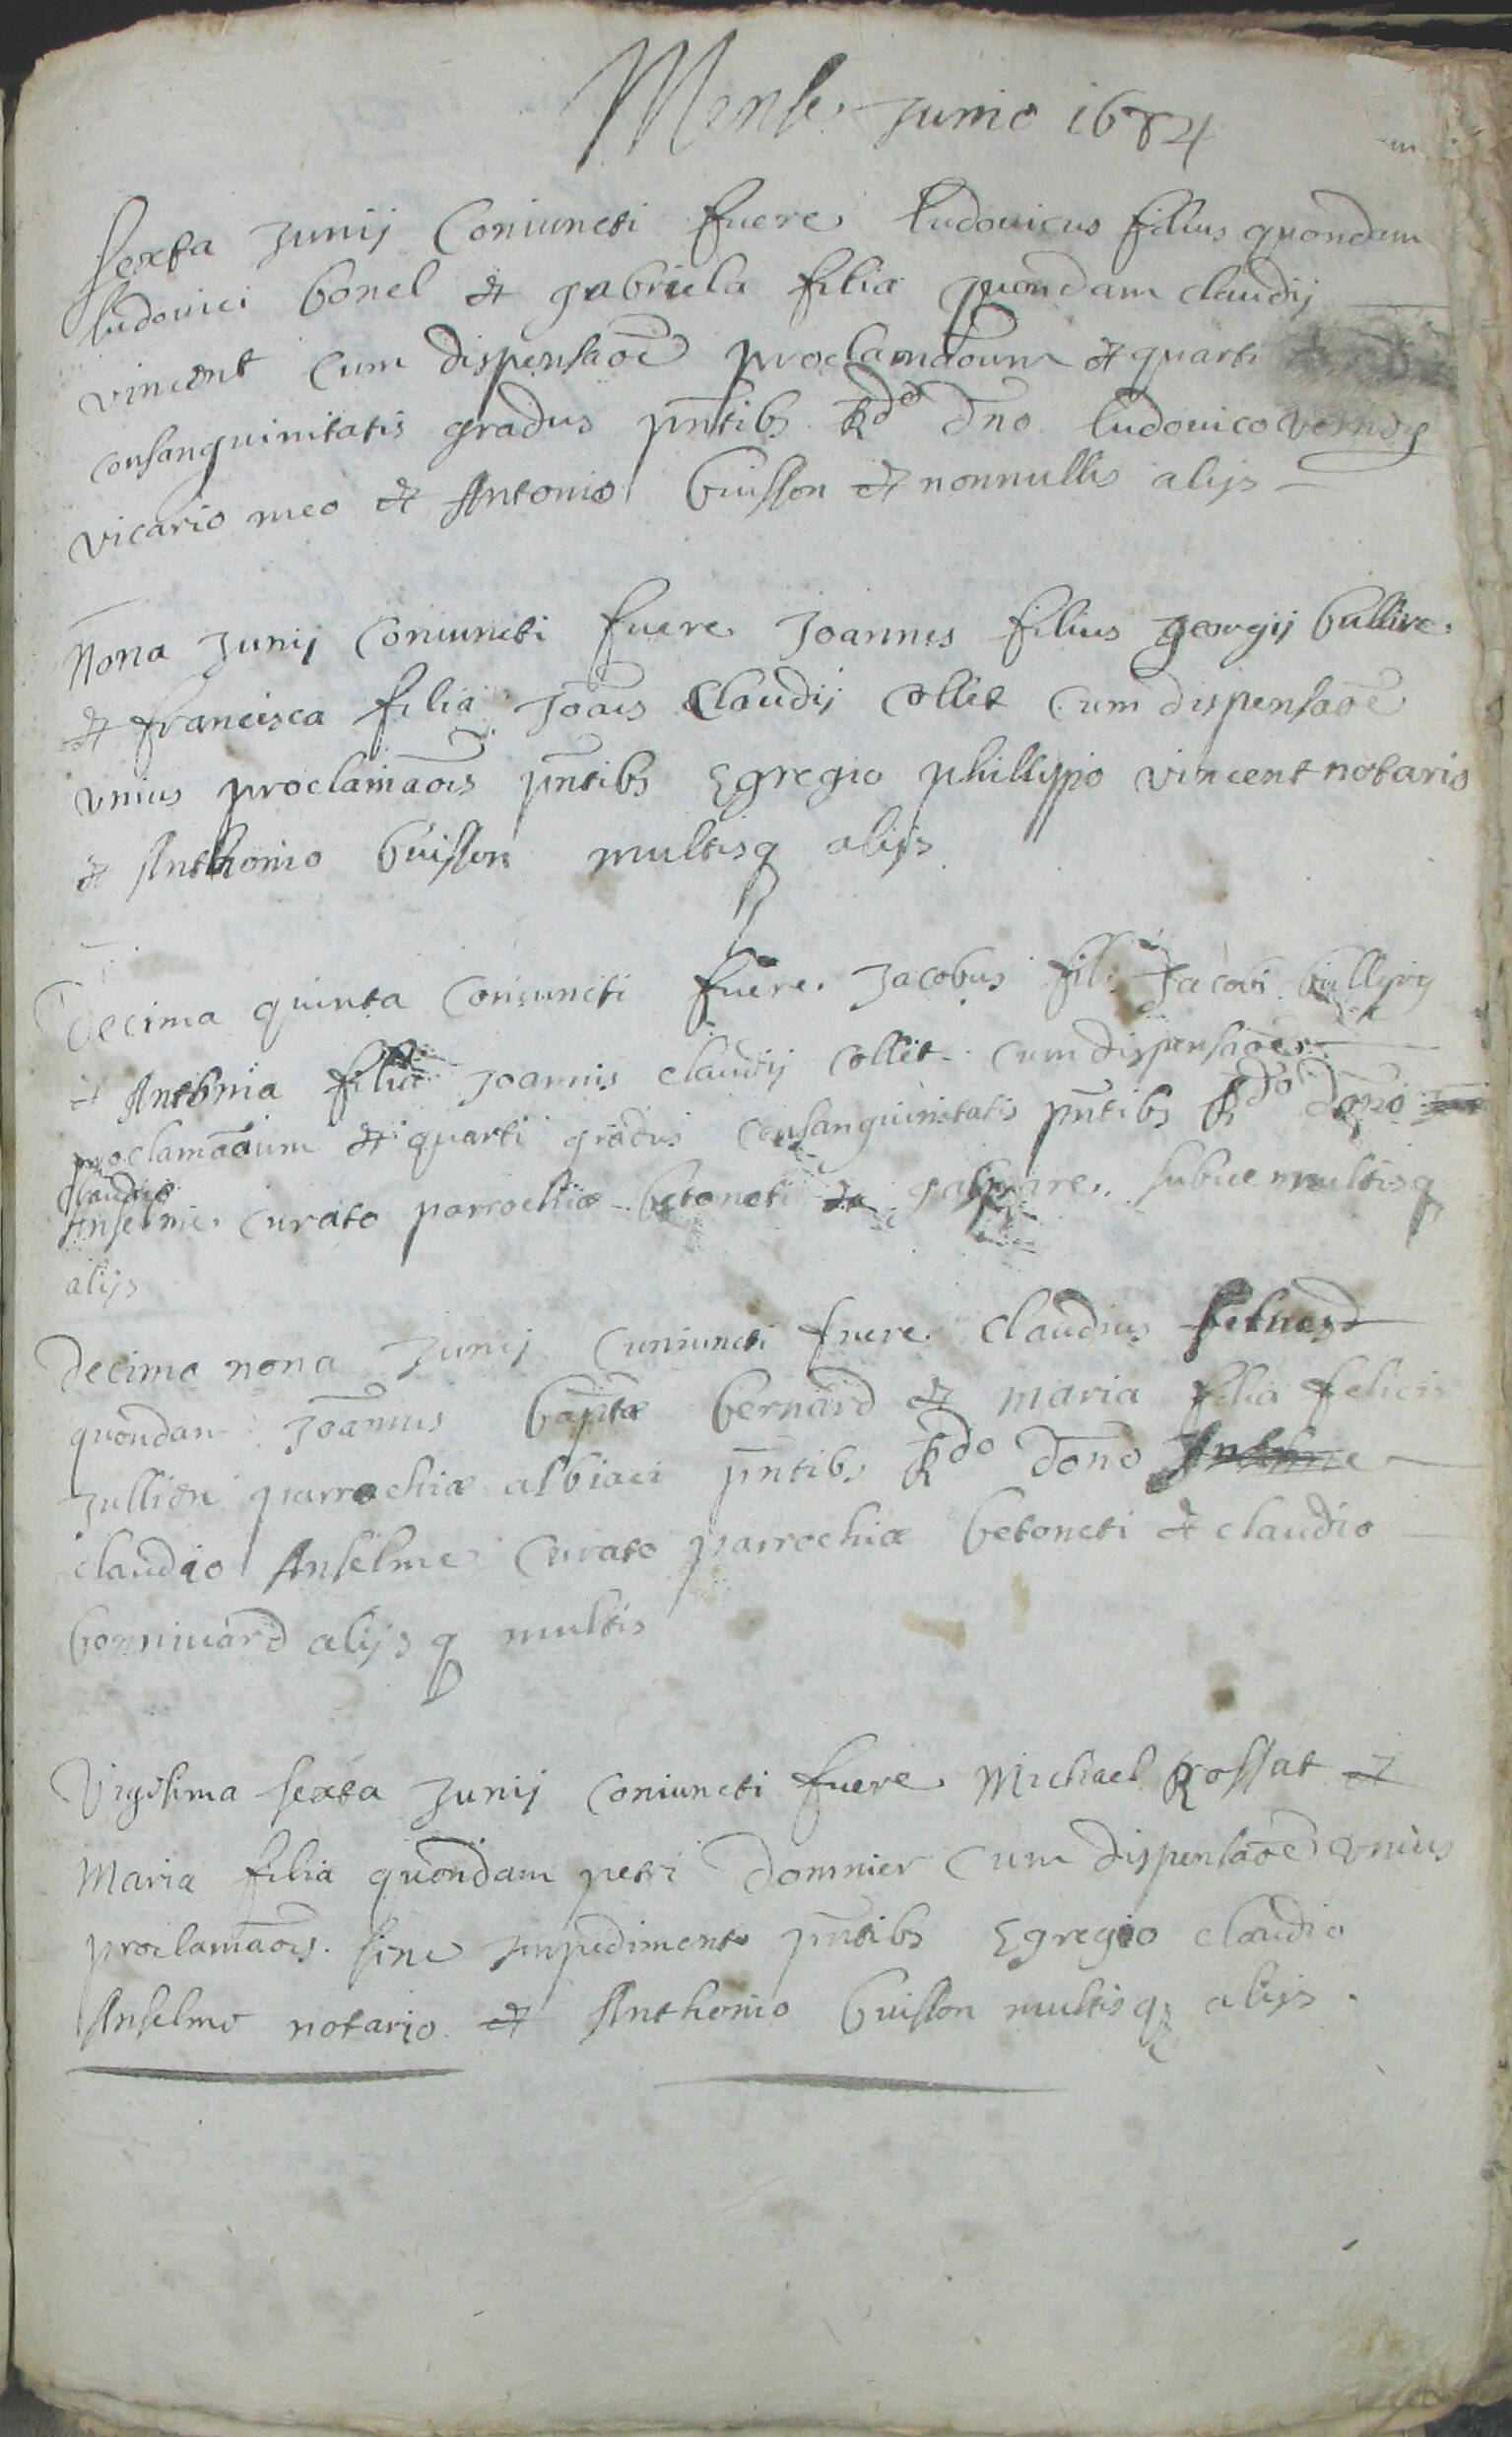 Mense Junio 1684
Sexta Junij Coniuncti fuere Ludouicus filius quondam
Ludouici bonel et gabriela filia quondam claudij
vincent Cum dispensaõe proclamãoum et quarti
consanguinitatis gradus pñtibs Rdo Dno Ludouico
vicario meo et Antonio buisson et nonnullis alijs
Nona Junij Coniuncti fuere Joannes filius georgij
et francisca filia Joãis Claudij Collet Cum dispensaõe
vnius proclamaõis pñtibs Egregio phillippo vincent notario
et Anthonio buisson multisq alijs
Decima quinta Coniuncti fuere Jacobus fil: Jacobi
et Anthonia filia Joannis claudij Collet Cum dispensaõe
proclamãoum et quarti gradus Consanguinitatis pñtibs Rdo Dono
Claudio
Anselme curato parrochiæ betoneti et multisq
alijs
Decima nona Junij Coniuncti fuere Claudius
quondam Joannis bapttæ bernard et maria filia felicis
Jullien parrochiæ albiaci pñtibs Rdo Dono Anselme
claudio Anselme Curato parrochiæ betoneti et claudio
bonniuard alijsq multis
Vigesima sexta Junij Coniuncti fuere Michael Rossat et
Maria filia quondam petri Domnier Cum dispensaõe vnius
proclamaõis. sine Impedimento pñtibs Egregio claudio
Anselmo notario et Anthonio buisson multisq alijs.